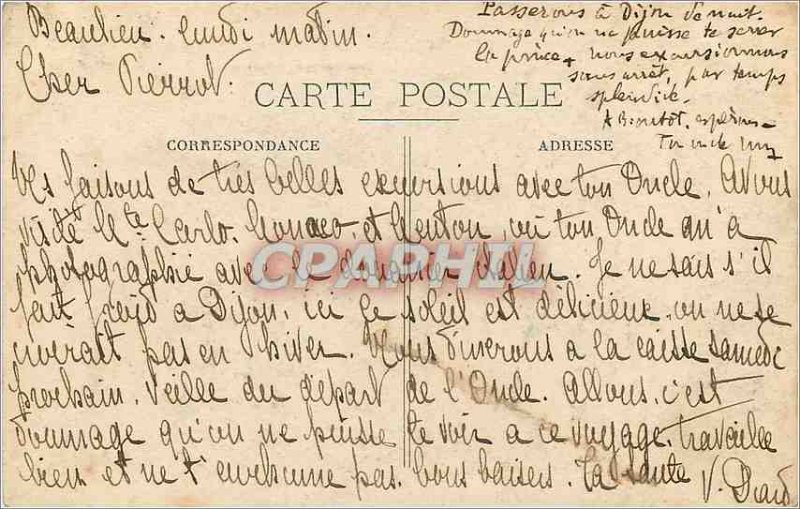 Beaulieu. Lundi matin.
Cher Pierrot.
Passerons à Dijon de nuit.
Dommage qu'on ne puisse te serrer
la pince. nous excursionnons
sans arrêt, par temps
splendide.
A Bientôt, espérons-
CARTE POSTALE
CORRESPONDANCE
ADRESSE
Ns faisons de très belles excursions avec ton Oncle. Avons
visité Mte Carlo. Monaco. et Menton, où ton Oncle m'a
photographié avec le douanier italien. Je ne sais s'il
fait froid a Dijon, ici le soleil est délicieux on ne se
croirait pas en hiver. Nous dinerons a la caisse samedi
prochain. Veille du départ de l'Oncle. Allons, c'est
dommage qu'on ne puisse te voir a ce voyage. travaille
bien et ne t'enrhume pas. bons baisers. ta tante
CPAPHIL